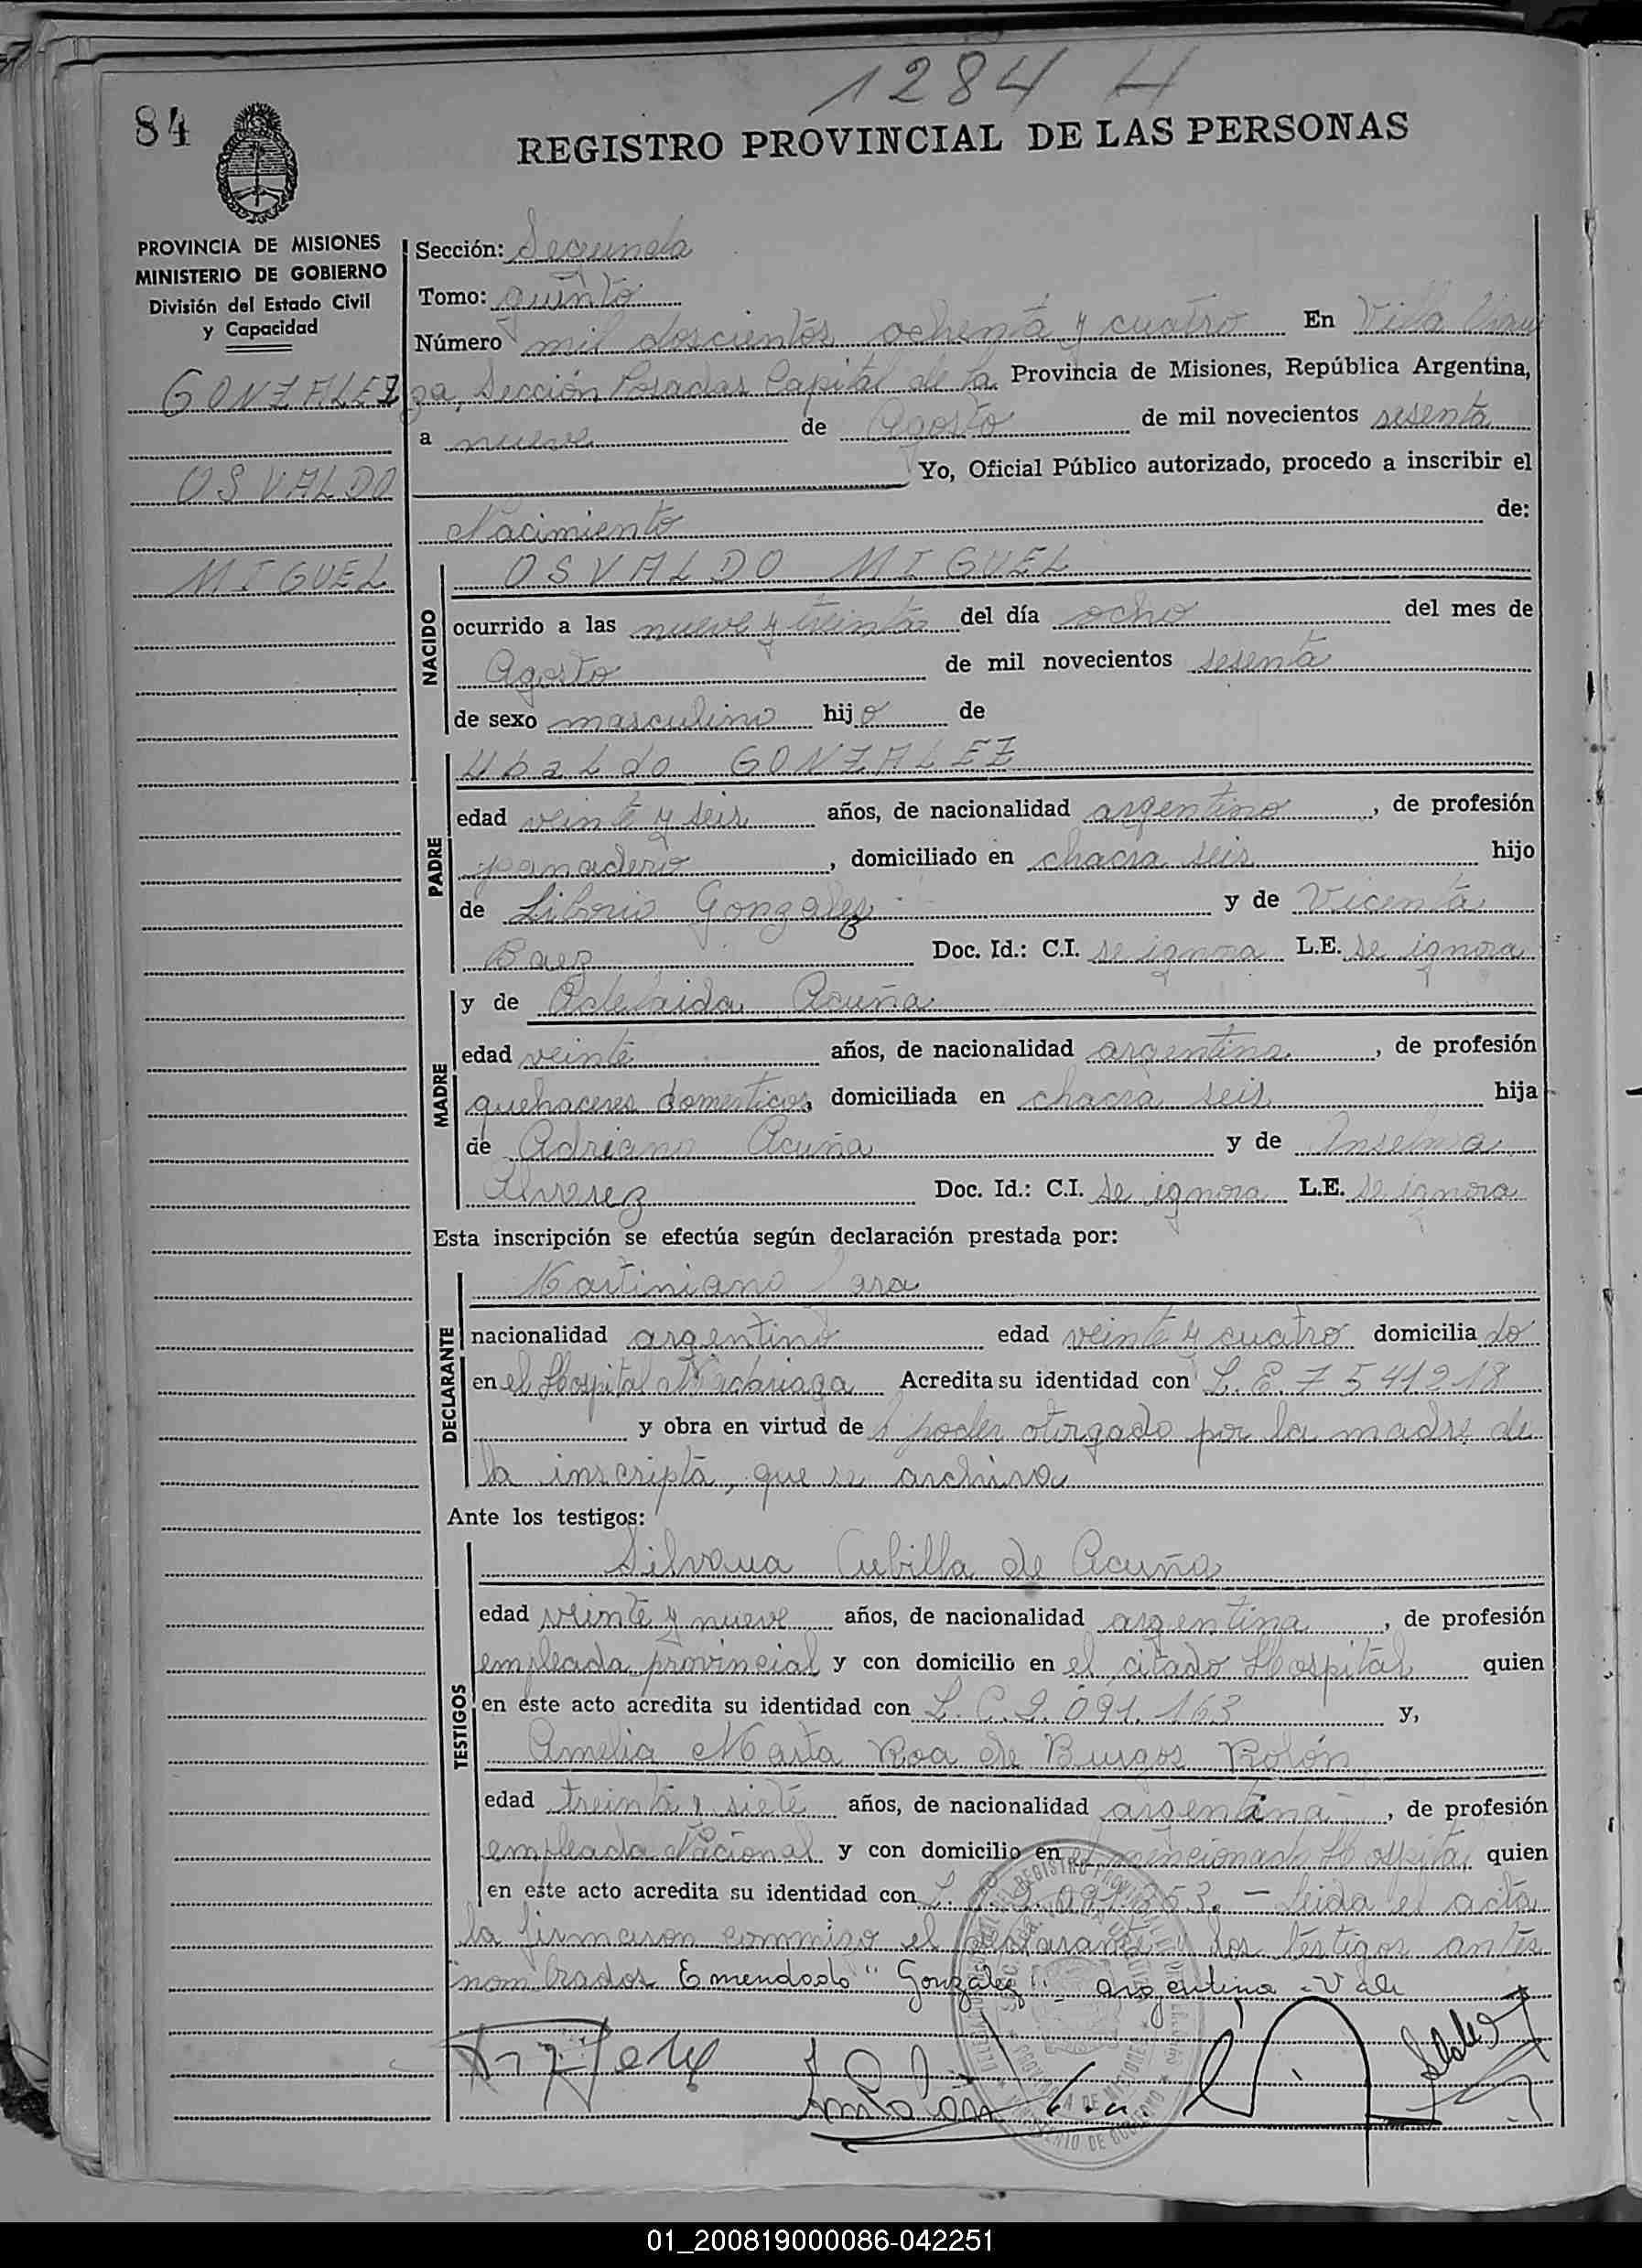 1284 H
84
REGISTRO PROVINCIAL DE LAS PERSONAS
PROVINCIA DE MISIONES
MINISTERIO DE GOBIERNO
División del Estado Civil
y Capacidad
GONZALEZ
OSVALDO
MIGUEL
Sección: Segunda
Tomo: quinto
Número mil doscientos ochenta y cuatro En Villa Urqui
za, Sección Posadas Capital de la Provincia de Misiones, República Argentina,
a nueve de Agosto de mil novecientos sesenta
Yo, Oficial Público autorizado, procedo a inscribir el
Nacimiento de:
NACIDO
OSVALDO MIGUEL
ocurrido a las nueve y treinta del día ocho del mes de
Agosto de mil novecientos sesenta
de sexo masculino hijo de
PADRE
Ubaldo GONZALEZ
edad veinte y seis años, de nacionalidad argentino, de profesión
panadero, domiciliado en chacra seis hijo
de Librio Gonzalez y de Vicenta
Baez Doc. Id.: C.I. se ignora L.E. se ignora
MADRE
y de Adelaida Acuña
edad veinte años, de nacionalidad argentina, de profesión
quehaceres domesticos, domiciliada en chacra seis hija
de Adriano Acuña y de Anselma
Alvarez Doc. Id.: C.I. se ignora L.E. se ignora
Esta inscripción se efectúa según declaración prestada por:
DECLARANTE
Martiniano Jara
nacionalidad argentino edad veinte y cuatro domiciliado
en el Hospital Madariaga Acredita su identidad con L.E. 7541218
y obra en virtud de poder otorgado por la madre de
la inscripta, que se archiva
Ante los testigos:
TESTIGOS
Silvana Cubilla de Acuña
edad veinte y nueve años, de nacionalidad argentina, de profesión
empleada provincial y con domicilio en el citado Hospital quien
en este acto acredita su identidad con L.C.2.091.163 y,
Amelia Marta Roa de Burgos Rolón
edad treinta y siete años, de nacionalidad argentina, de profesión
empleada Nacional y con domicilio en el mencionado Hospital quien
en este acto acredita su identidad con - Leida el acta
la firmaron conmigo el declarante y los testigos antes
nombrados Emendado "Gonzalez". argentina - Vale
01_200819000086-042251